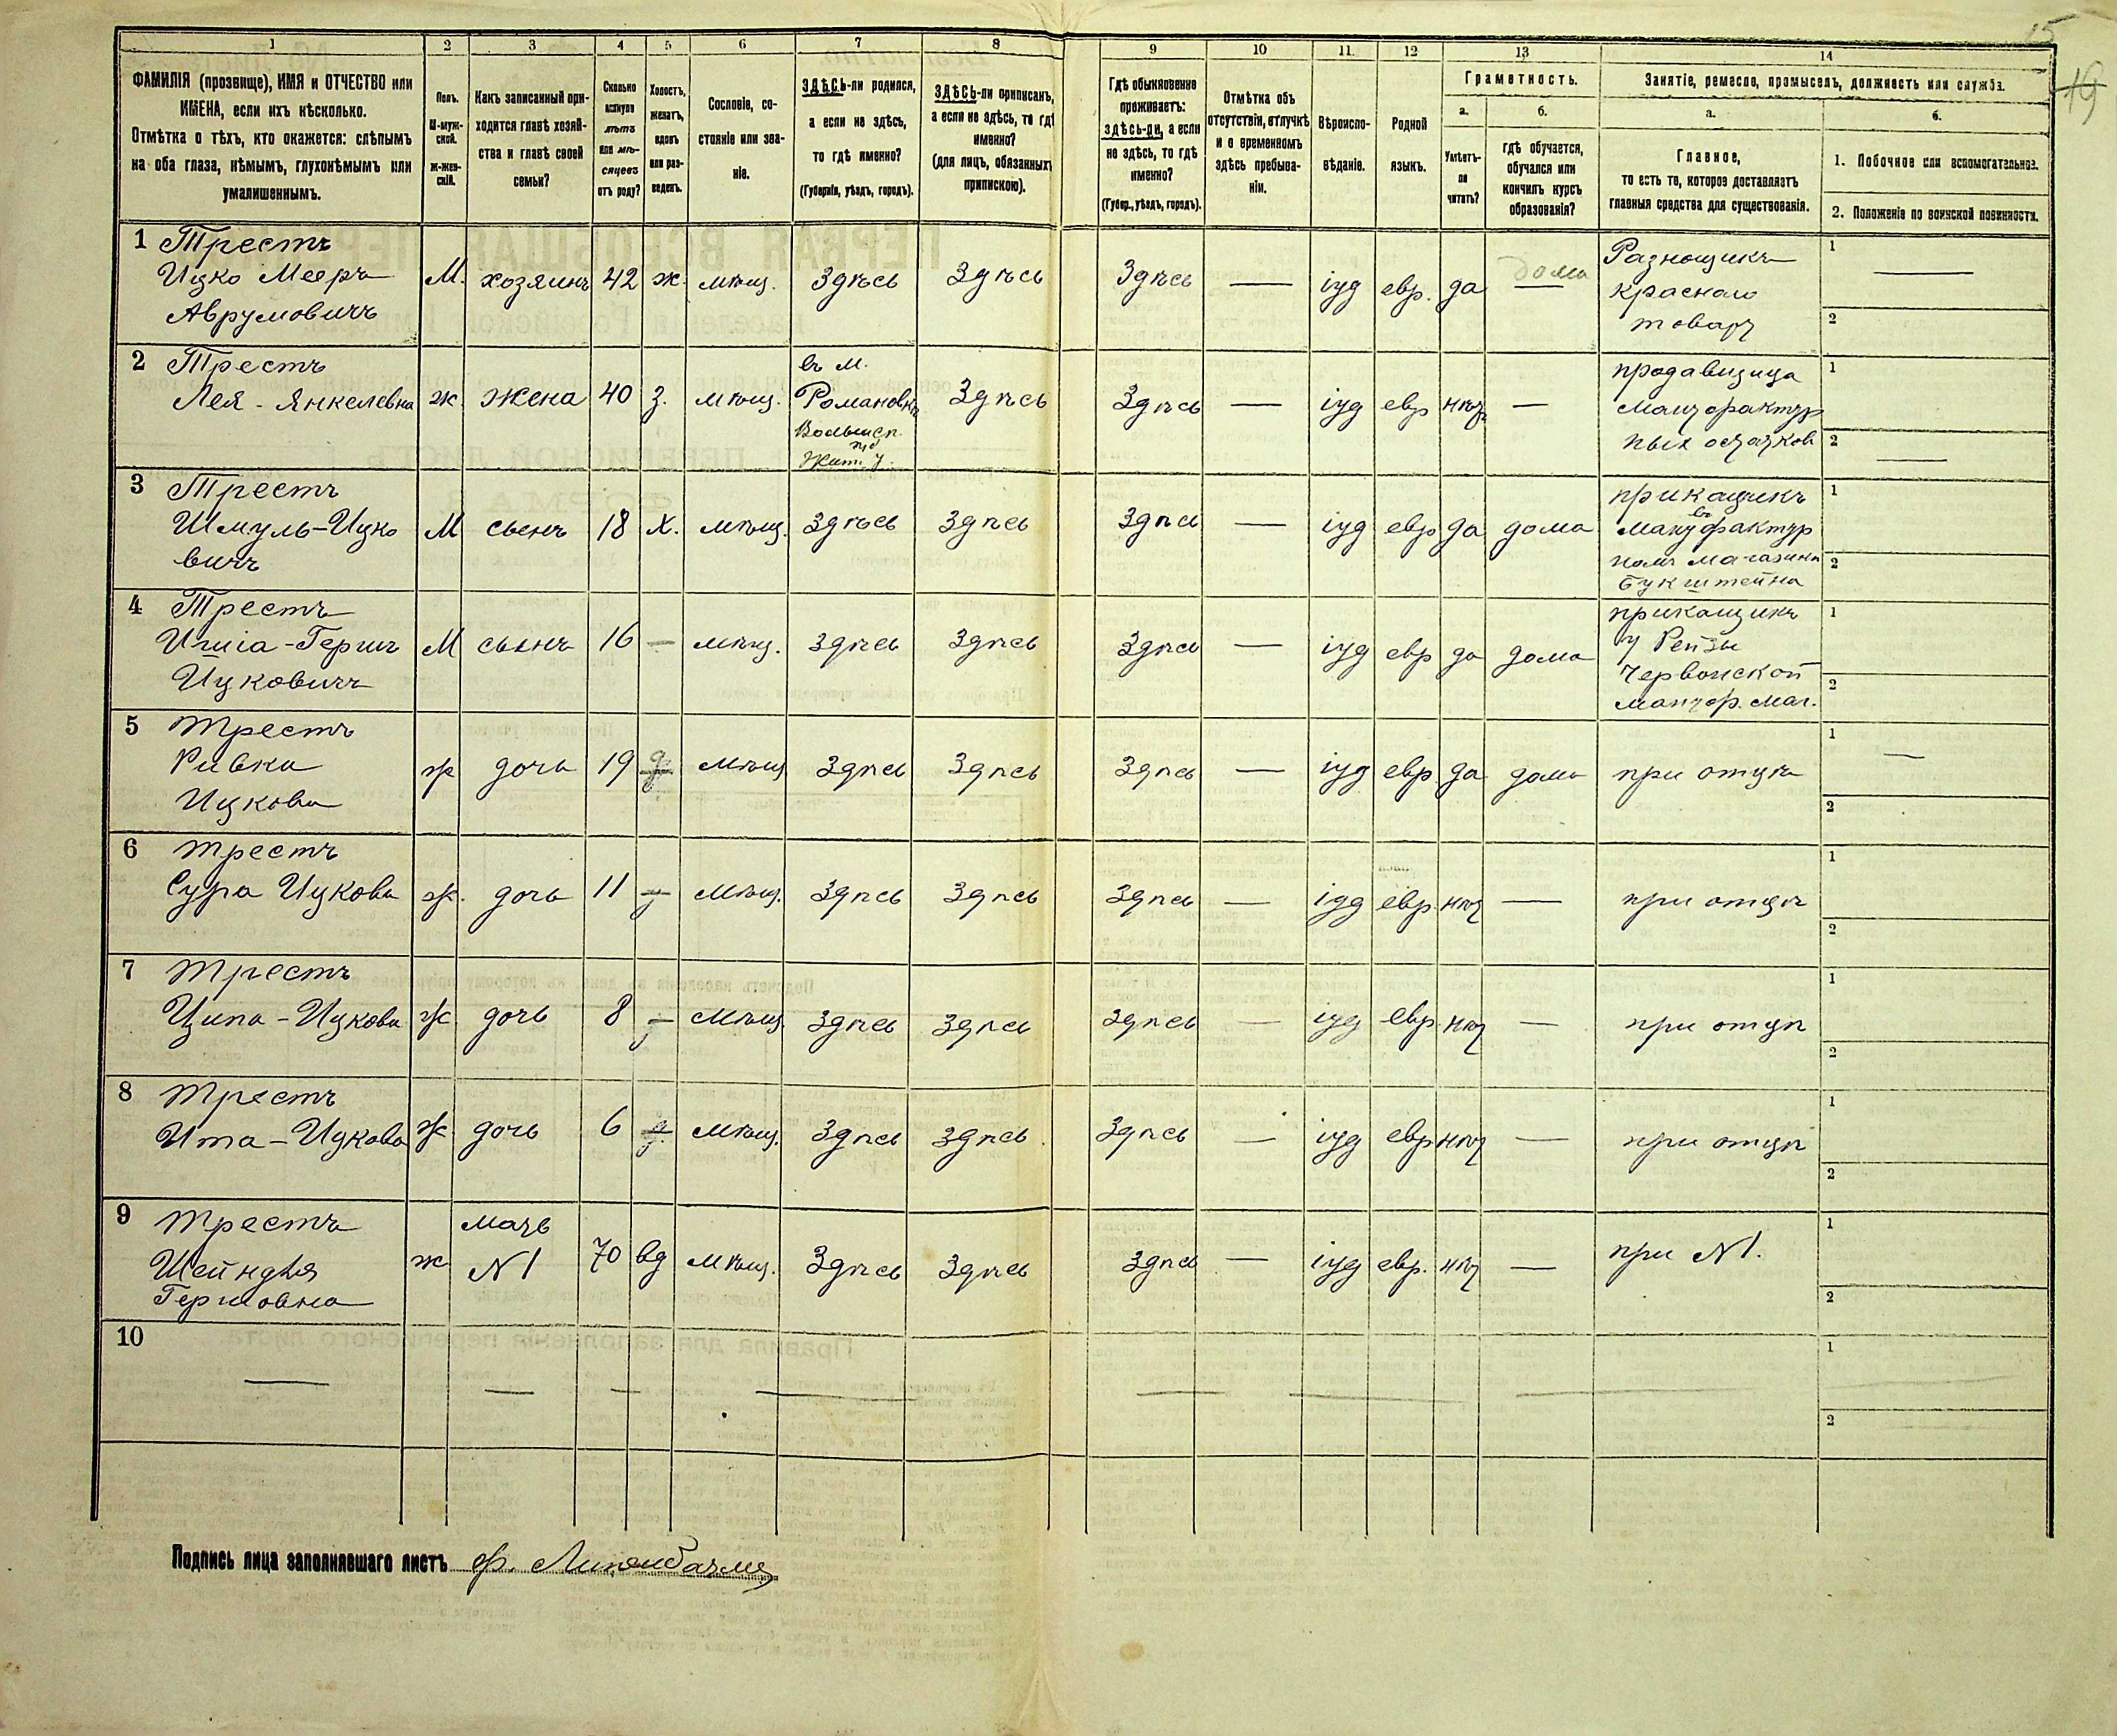 15
19
1 2 3 4 5 6 7 8 9 10 11 12 13 14
ФАМИЛІЯ (прозвище), ИМЯ и ОТЧЕСТВО или
ИМЕНА, если ихъ нѣсколько.
Отмѣтка о тѣхъ, кто окажется: слѣпымъ
на оба глаза, нѣмымъ, глухонѣмымъ или
умалишеннымъ.
Полъ.
М-муж-
ской.
ж-жен-
скій.
Какъ записанный при-
ходится главѣ хозяй-
ства и главѣ своей
семьи?
Сколько
минуло
лѣтъ
или мѣ-
сяцевъ
отъ роду?
Холостъ,
женатъ,
вдовъ
или раз-
веденъ.
Сословіе, со-
стояніе или зва-
ніе.
ЗДѢСЬ-ли родился,
а если не здѣсь,
то гдѣ именно?
(Губернія, уѣздъ, городъ).
ЗДѢСЬ-ли приписанъ,
а если не здѣсь, то гдѣ
именно?
(для лицъ, обязанныхъ
припискою).
Гдѣ обыкновенно
проживаетъ:
здѣсь-ли, а если
не здѣсь, то гдѣ
именно?
(Губер., уѣздъ, городъ).
Отмѣтка объ
отсутствіи, отлучкѣ
и о временномъ
здѣсь пребыва-
ніи.
Вѣроиспо-
вѣданіе.
Родной
языкъ.
Грамотность.
а.
Умѣетъ-
ли
читать?
б.
гдѣ обучается,
обучался или
кончилъ курсъ
образованія?
Занятіе, ремесло, промыселъ, должность или служба.
а.
Главное,
то есть то, которое доставляетъ
главныя средства для существованія.
б.
1. Побочное или вспомогательное.
2. Положеніе по воинской повинности.
1 Трестъ
Ицко Мееръ
Аврумовичъ
М. хозяинъ 42 ж. мѣщ. Здѣсь Здѣсь Здѣсь — іуд евр. да дома
Разнощикъ
краснаго
товару
1 —
2
2 Трестъ
Лея - Янкелевна
ж. жена 40 з. мѣщ.
въ М.
Романовкѣ
Волынск.
губ
Жит. у.
Здѣсь Здѣсь — іуд евр нѣт —
продавщица
мануфактур
ных остатков
1
2 —
3 Трестъ
Шмуль-Ицко
вичъ
М сынъ 18 х. мѣщ. Здѣсь Здѣсь Здѣсь — іуд евр да дома
прикащикъ
въ
мануфактур
номъ магазинѣ
Букштейна
1
2
4 Трестъ
Ишіа-Герш
Ицковичъ
М сынъ 16 — мѣщ. Здѣсь Здѣсь Здѣсь — іуд евр да дома
прикащикъ
у Рейзы
Червонской
мануф. маг.
1
2
5 Трестъ
Ривка
Ицкова
ж дочь 19 д мѣщ Здѣсь Здѣсь Здѣсь — іуд евр да дома при отцѣ
1 —
2
6 Трестъ
Сура Ицкова
ж. дочь 11 — мѣщ. Здѣсь Здѣсь Здѣсь — іуд евр. нѣт — при отцѣ
1
2
7 Трестъ
Ципа - Ицкова
ж дочь 8 — мѣщ Здѣсь Здѣсь Здѣсь — іуд евр. нѣт — при отцѣ
1
2
8 Трестъ
Ита - Ицкова
ж дочь 6 — мѣщ. Здѣсь Здѣсь Здѣсь — іуд евр нѣт — при отцѣ
1
2
9 Трестъ
Шейндля
Гершовна
ж
мать
N1
70 вд мѣщ. Здѣсь Здѣсь Здѣсь — іуд евр. нѣт — при N1.
1
2
10 — — — — — —
1
2
Подпись лица заполнявшаго листъ